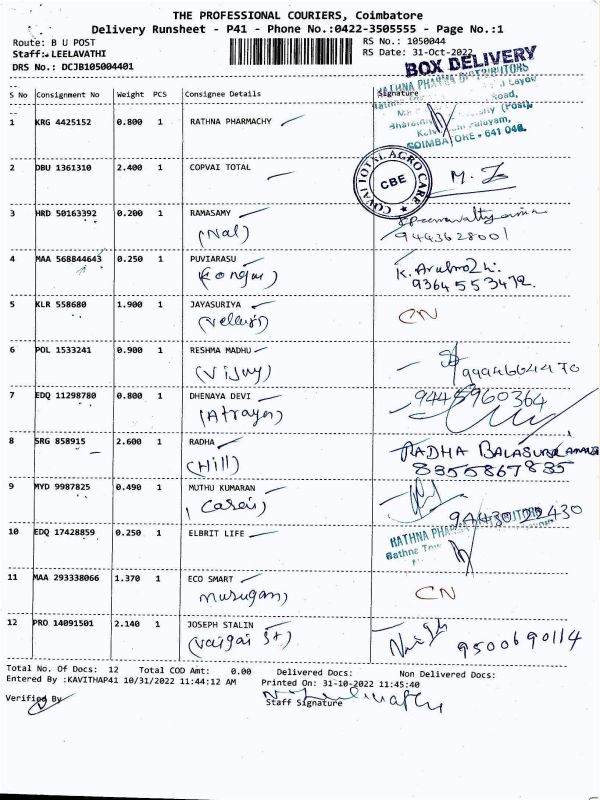 THE PROFESSIONAL COURIERS, Coimbatore
Delivery Runsheet - P41 - Phone No.:0422-3505555 - Page No.:1
Route: B U POST
RS No.: 1050044
Staff: LEELAVATHI
RS Date: 31-Oct-2022
DRS No.: DCJB105004401
BOX DELIVERY
S No Consignment No Weight PCS Consignee Details Signature
RATHNA PHARMA DISTRIBUTORS
Road,
COIMBATORE - 641 046.
1 KRG 4425152 0.800 1 RATHNA PHARMACHY
2 DBU 1361310 2.400 1 COPVAI TOTAL
COVAI TOTAL AGRO CARE
CBE
3 HRD 50163392 0.200 1 RAMASAMY
(Nal) 9443628001
4 MAA 568844643 0.250 1 PUVIARASU
(Kongu) 9364553472.
5 KLR 558680 1.900 1 JAYASURIYA CN
6 POL 1533241 0.900 1 RESHMA MADHU
(Vijay) 9994664470
7 EDQ 11298780 0.800 1 DHENAYA DEVI 9445960364
8 SRG 858915 2.600 1 RADHA RADHA
(Hill) 8355867835
9 MYD 9987825 0.490 1 MUTHU KUMARAN
9443022430
10 EDQ 17428859 0.250 1 ELBRIT LIFE RATHNA PHARMA DISTRIBUTORS
11 MAA 293338066 1.370 1 ECO SMART
Murugan) CN
12 PRO 14091501 2.140 1 JOSEPH STALIN
(Vaigai St) 9500690114
Total No. Of Docs: 12 Total COD Amt: 0.00 Delivered Docs: Non Delivered Docs:
Entered By :KAVITHAP41 10/31/2022 11:44:12 AM Printed On: 31-10-2022 11:45:40
Verified By Staff Signature